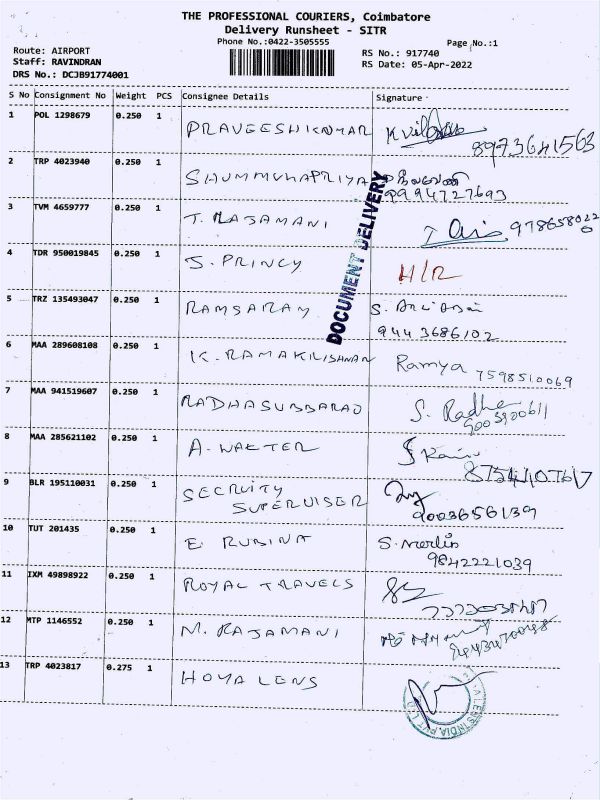 THE PROFESSIONAL COURIERS, Coimbatore
Delivery Runsheet - SITR
Phone No.:0422-3505555
Page No.:1
Route: AIRPORT
Staff: RAVINDRAN
DRS No.: DCJB91774001
RS No.: 917740
RS Date: 05-Apr-2022
S No Consignment No Weight PCS Consignee Details Signature
1 POL 1298679 0.250 1 PRAVEESHKUMAR 8973641563
2 TRP 4023940 0.250 1 SHUMMUHAPRIYA 9994727693
3 TVM 4659777 0.250 1 T. RAJAMANI
4 TDR 950019845 0.250 1 S. PRINCY H/R
5 TRZ 135493047 0.250 1 RAMSARAM S.
9443686102
6 MAA 289608108 0.250 1 K. RAMAKRISHNAN Ramya 7598510069
7 MAA 941519607 0.250 1 RADHASUBBARAO S. Radha
9003900611
8 MAA 285621102 0.250 1 A. WALTER
9 BLR 195110031 0.250 1 SECRUITY
SUPERVISER 9003656139
10 TUT 201435 0.250 1 E. RUBINA S. Merlin
9842221039
11 IXM 49898922 0.250 1 ROYAL TRAVELS
12 MTP 1146552 0.250 1 M. RAJAMANI
13 TRP 4023817 0.275 1 HOYA LENS
DOCUMENT DELIVERY
LENS INDIA PVT. LTD